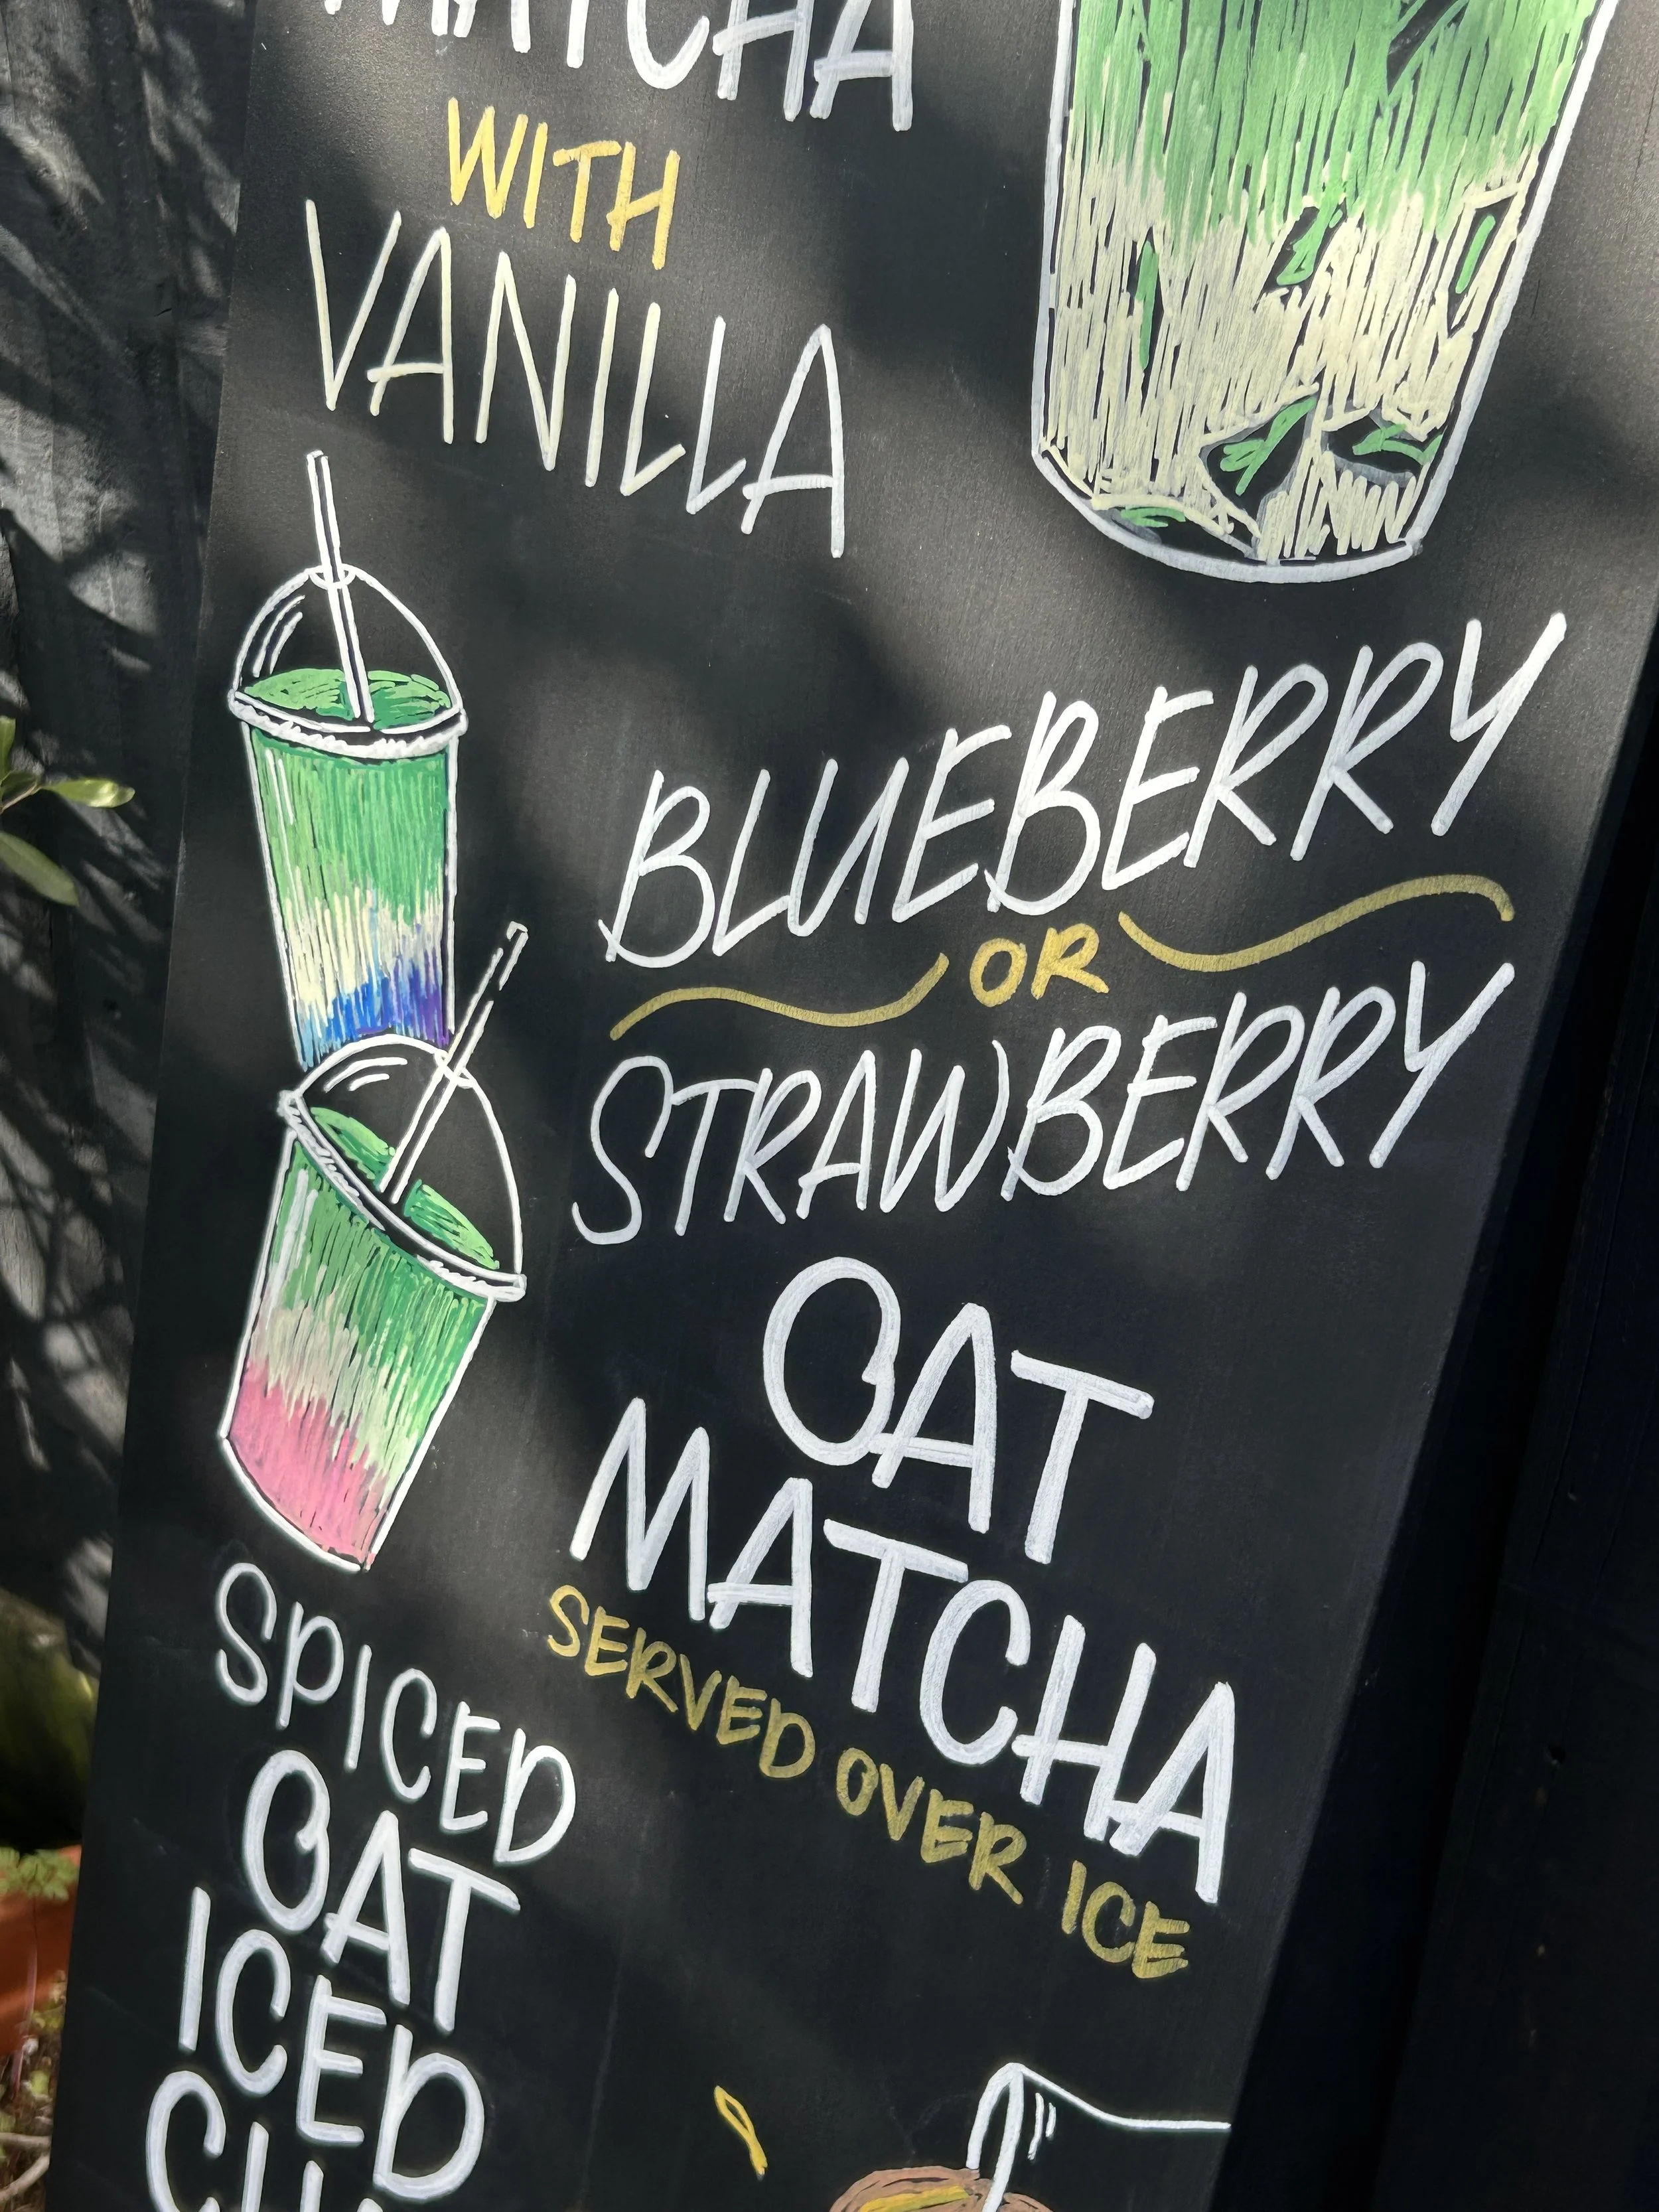 MATCHA
WITH
VANILLA
BLUEBERRY
OR
STRAWBERRY
OAT
MATCHA
SERVED OVER ICE
SPICED
OAT
ICED